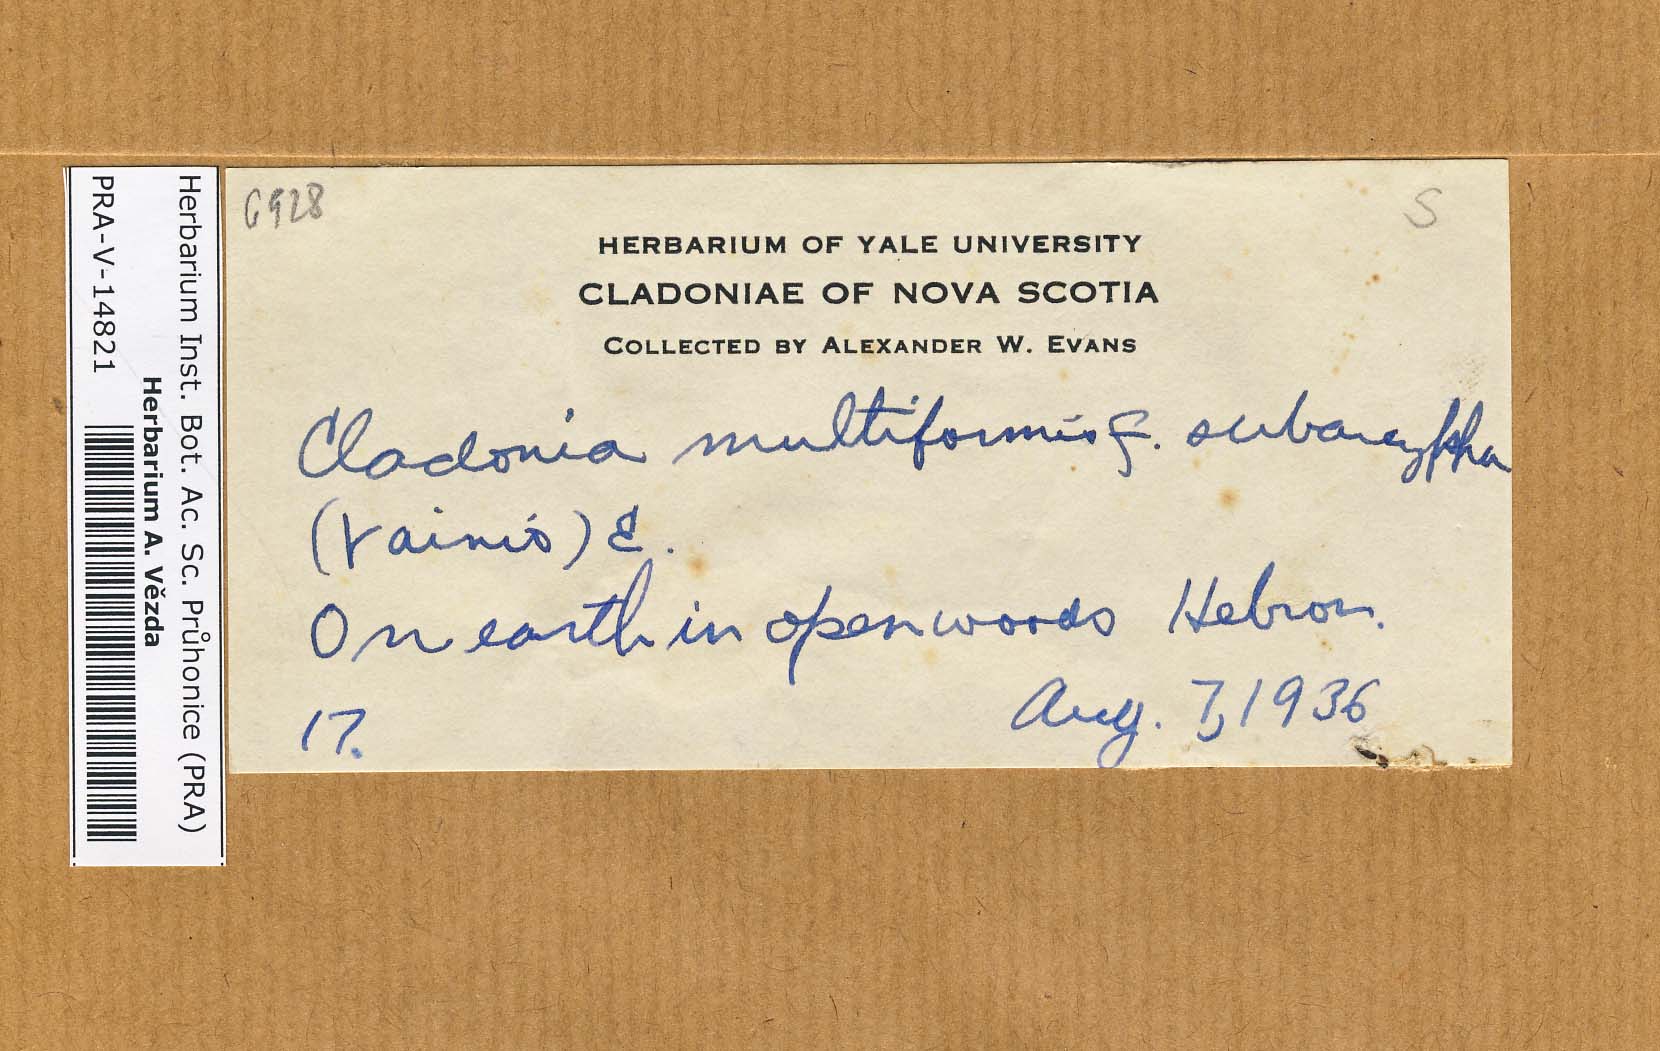 Herbarium Inst. Bot. Ac. Sc. Průhonice (PRA)
Herbarium A. Vězda
PRA-V-14821
6928
S
HERBARIUM OF YALE UNIVERSITY
CLADONIAE OF NOVA SCOTIA
COLLECTED BY ALEXANDER W. EVANS
Cladonia multiformis f. subascypha
(Vainio) E.
On earth in open woods Hebron.
17.
Aug. 7, 1936